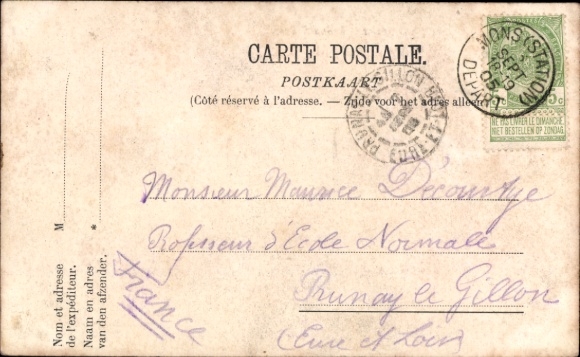 CARTE POSTALE.
POSTKAART
(Côté réservé à l'adresse. — Zijde voor het adres alleen
MONS (STATION)
SEPT
DEPART
5c
NE PAS LIVRER LE DIMANCHE
NIET BESTELLEN OP ZONDAG
EURE-&-L
Monsieur Maurice
Professeur d'Ecole Normale
Prunay le Gillon
(Eure et Loir)
France
M
Nom et adresse
de l'expéditeur.
*
Naam en adres
van den afzender.